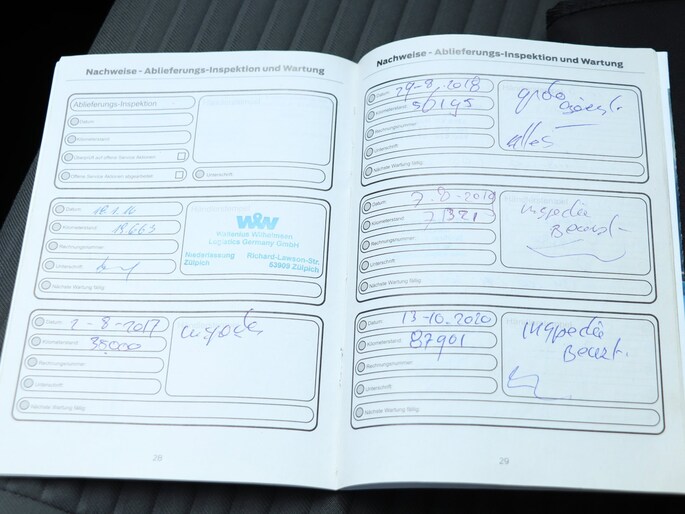 Nachweise - Ablieferungs-Inspektion und Wartung
Ablieferungs-Inspektion
Datum
Kilometerstand
Rechnungsnummer
Überprüft auf offene Service Aktionen
Offene Service Aktionen abgearbeitet
Unterschrift
Datum
Kilometerstand
Rechnungsnummer
Unterschrift
Nächste Wartung fällig
Logistics Germany GmbH
Niederlassung Richard-Lawson-Str.
Zülpich 53909 Zülpich
Datum 2-8-2017
Kilometerstand 35000
Rechnungsnummer
Unterschrift
Nächste Wartung fällig
28
Nachweise - Ablieferungs-Inspektion und Wartung
Datum 29-8-2018
Kilometerstand 56195
Rechnungsnummer
Unterschrift
Nächste Wartung fällig
Datum 7-8-2019
Kilometerstand 71321
Rechnungsnummer
Unterschrift
Nächste Wartung fällig
Datum 13-10-2020
Kilometerstand 87901
Rechnungsnummer
Unterschrift
Nächste Wartung fällig
29